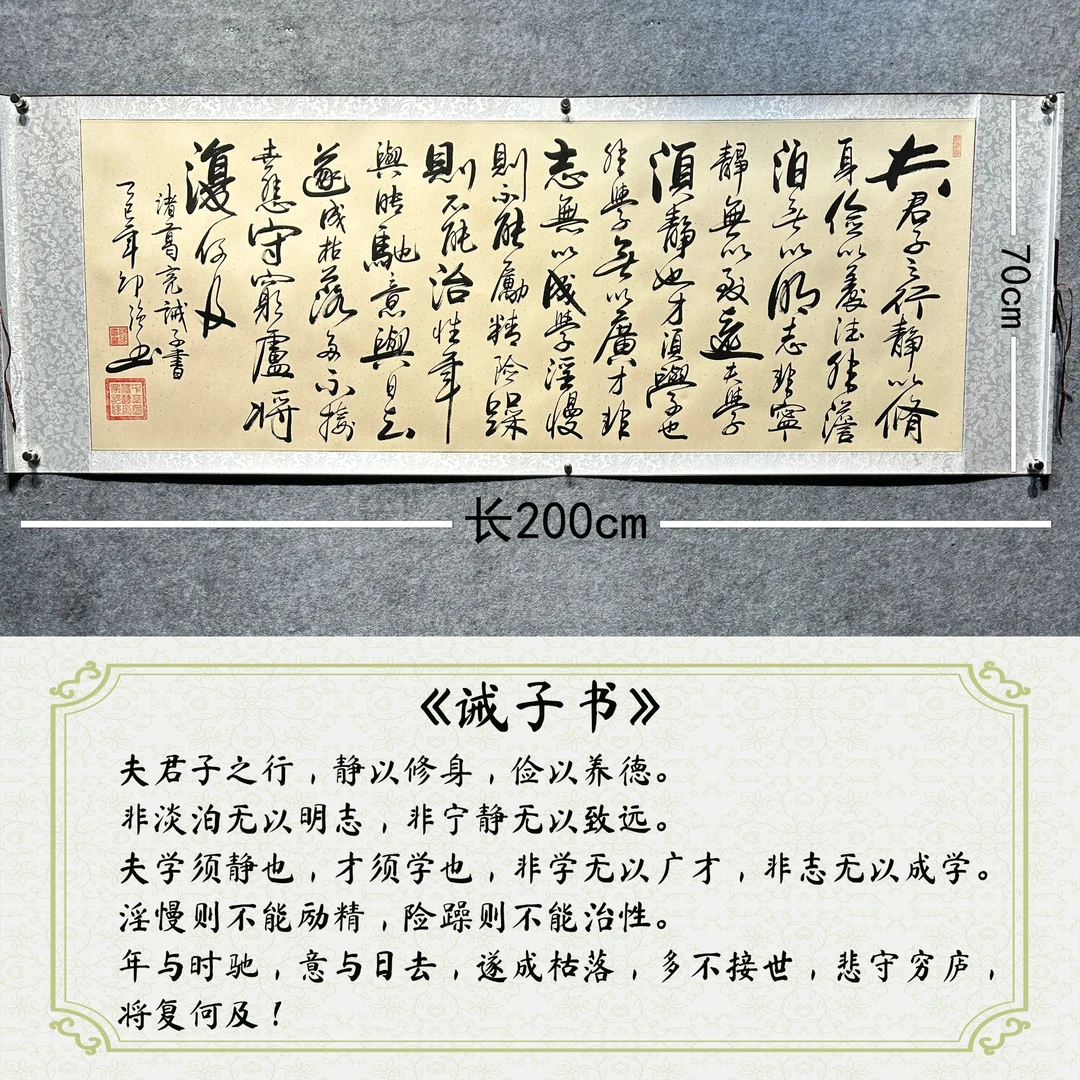 夫君子之行靜以脩
身儉以養德非澹
泊無以明志非寧
靜無以致遠夫學
須靜也才須學也
非學無以廣才非
志無以成學淫慢
則不能勵精險躁
則不能治性年
與時馳意與日去
遂成枯落多不接
世悲守窮廬將
復何及
諸葛亮誡子書
乙巳年 书
70cm
长200cm
《诫子书》
夫君子之行，静以修身，俭以养德。
非淡泊无以明志，非宁静无以致远。
夫学须静也，才须学也，非学无以广才，非志无以成学。
淫慢则不能励精，险躁则不能治性。
年与时驰，意与日去，遂成枯落，多不接世，悲守穷庐，
将复何及！